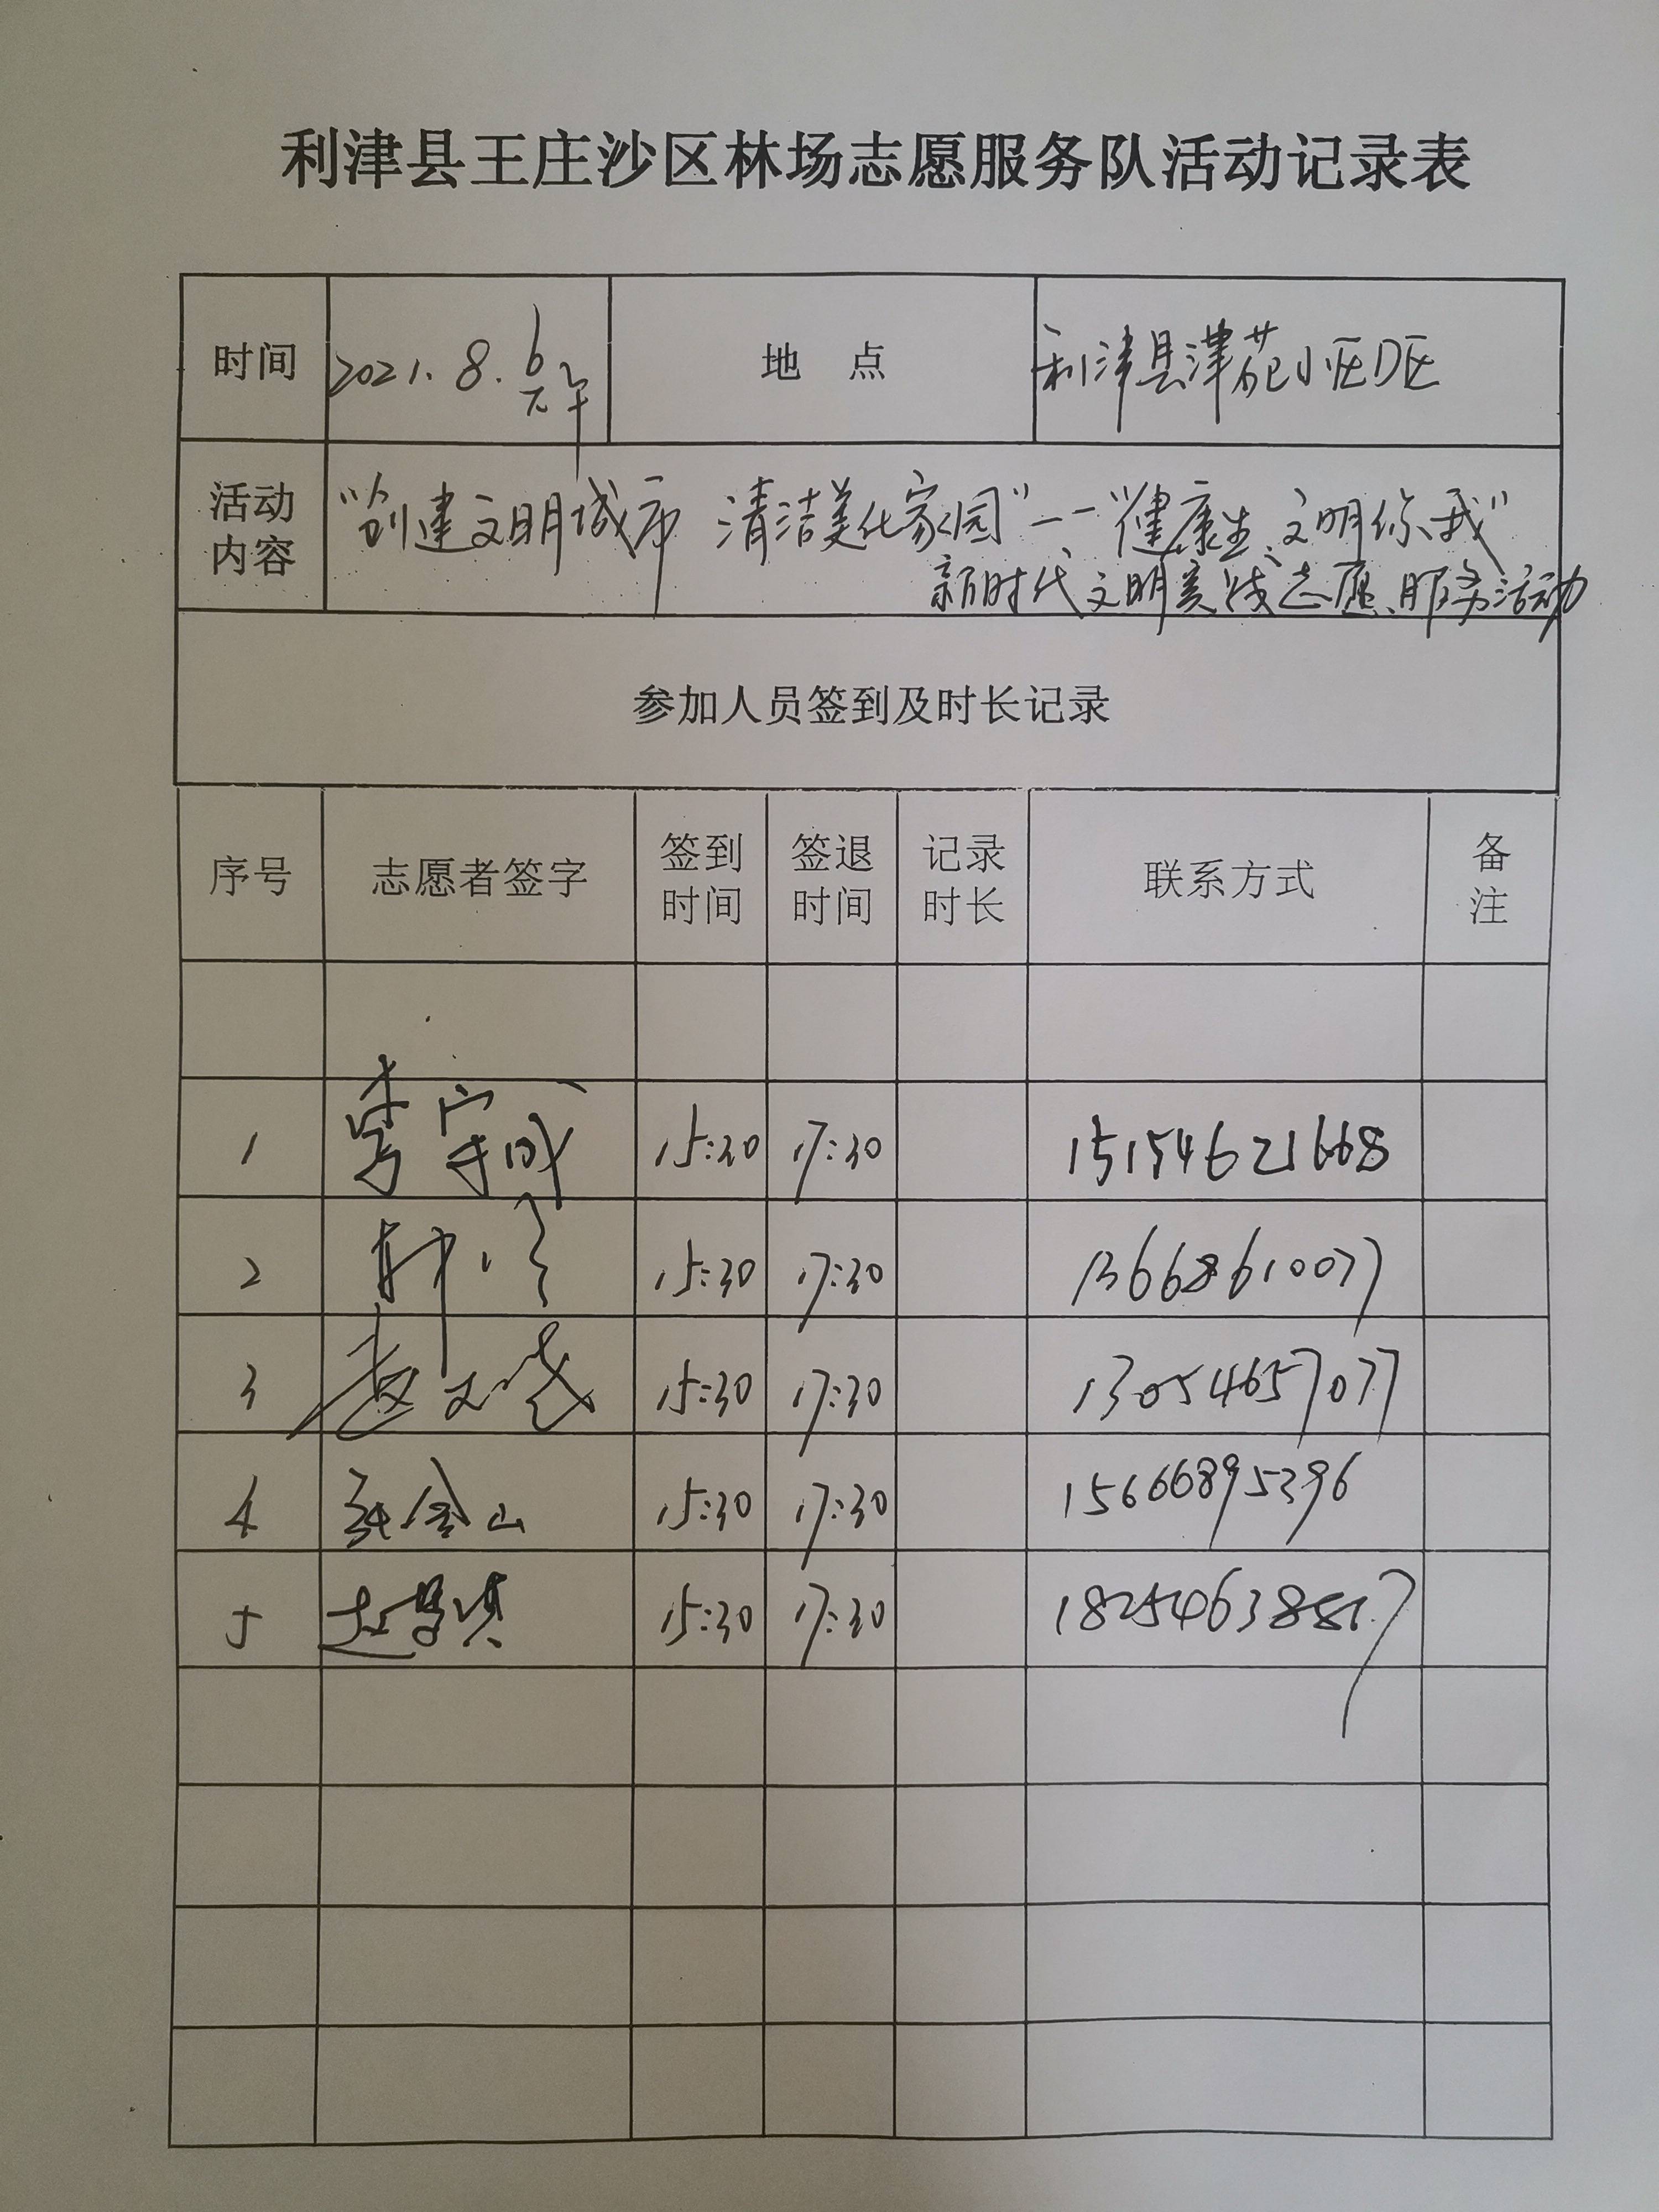 利津县王庄沙区林场志愿服务队活动记录表
时间 2021.8.6 下午 地点 利津县津苑小区D区
活动内容 “创建文明城市 清洁美化家园”——“健康生、文明你我”
新时代文明实践志愿服务活动
参加人员签到及时长记录
序号 志愿者签字 签到时间 签退时间 记录时长 联系方式 备注
1 15:30 17:30 15154621668
2 15:30 17:30 13668610077
3 15:30 17:30 13054657077
4 张金山 15:30 17:30 15666895396
5 15:30 17:30